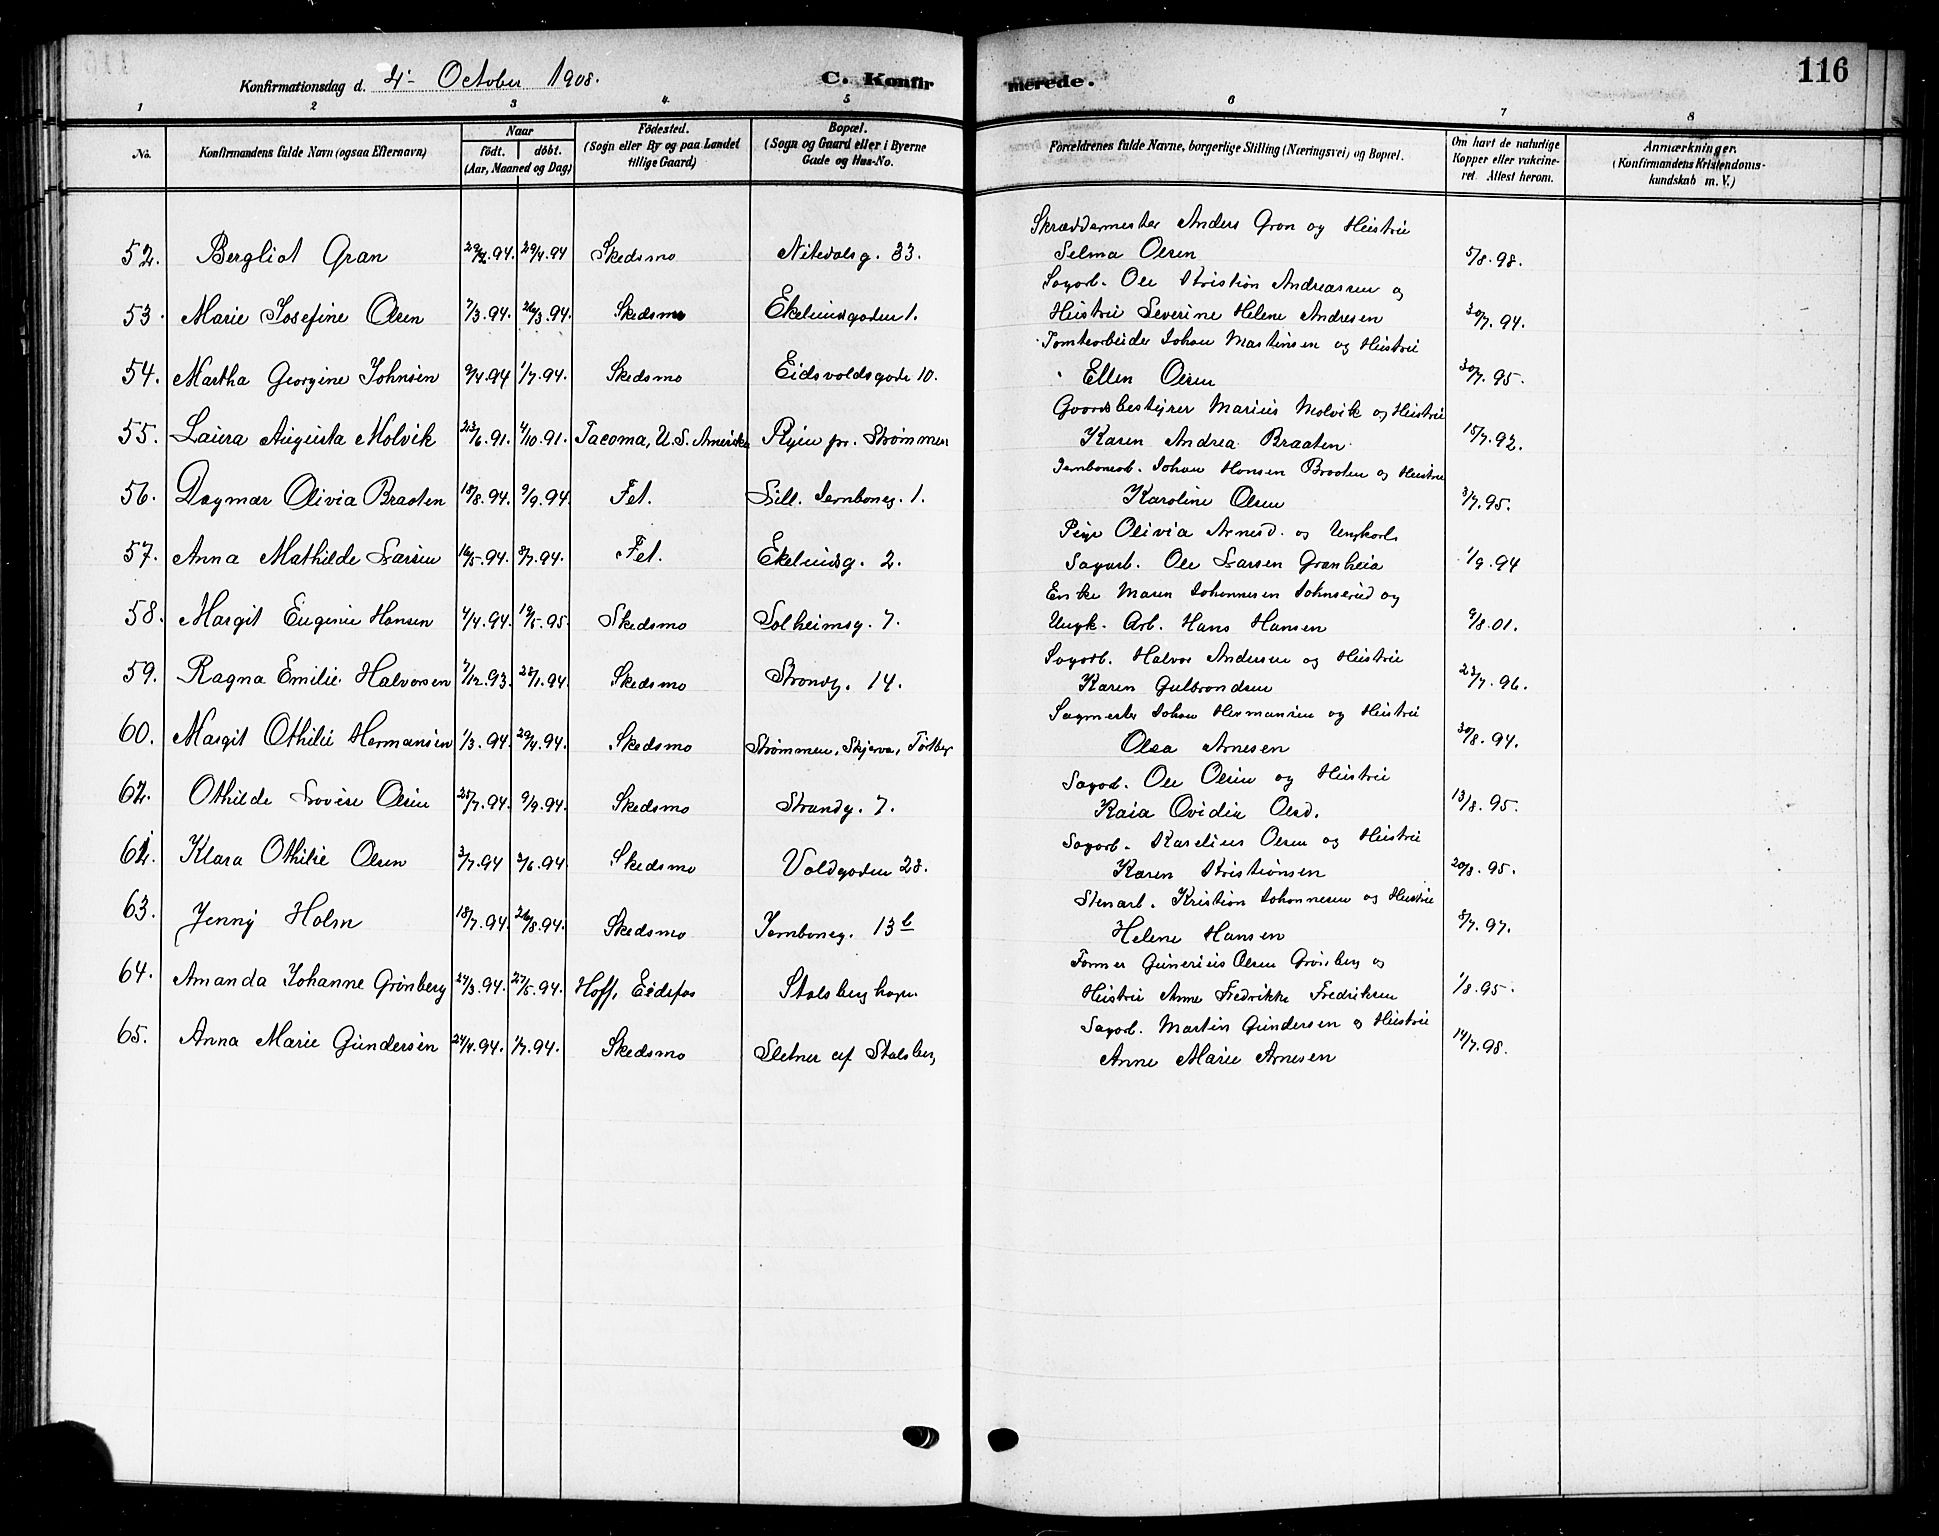 116
Konfirmationsdag d. 4- October 1908.
C. Konfirmerede.
1 2 3 4 5 6 7 8
No.
Konfirmandens fulde Navn (ogsaa Efternavn)
Naar
født. døbt.
(Aar, Maaned og Dag)
Fødested.
(Sogn eller By og paa Landet
tillige Gaard)
Bopæl.
(Sogn og Gaard eller i Byerne
Gade og Hus-No.
Forældrenes fulde Navne, borgerlige Stilling (Næringsvei) og Bopæl.
Om havt de naturlige
Kopper eller vakcine-
ret. Attest herom.
Anmærkninger.
(Konfirmandens Kristendoms-
kundskab m. V.)
Skræddermester Anders Gran og Hustru
52. Bergliot Gran 29/4.94 Skedsmo Nitedalsg. 33. Selma Olsen 5/8.98.
Sagarb. Ole Kristian Andreassen og
53. Marie Josefine Olsen 7/3.94. 26/3.94. Skedsmo Ekelundgaden 1. Hustru Severine Helene Andresen 30/7.94.
Tomtearbeider Johan Martinsen og Hustru
54. Martha Georgine Johnsen 9/4.94 1/7.94. Skedsmo Eidsvoldsgade 10. Ellen Olsen 30/7.95.
Gaardsbestyrer Marius Molvik og Hustru
55. Laura Augusta Molvik 23/6.91. 4/10.91. Tacoma, U.S. Amerika Ryen pr. Strømmen Karen Andrea Braaten 15/7.92.
Jernbanearb. Johan Hansen Braaten og Hustru
56. Dagmar Olivia Braaten 18/8.94. 9/9.94. Fet. Lill. Jernbaneg. 1. Karoline Olsen 3/7.95.
Pige Olivia Arnesd. og Ungkarl
57. Anna Mathilde Larsen 16/5.94. 8/7.94. Fet. Ekelundsg. 2. Sagarb. Ole Larsen Granheia 1/9.94
Enke Maren Johannesen Johnserud og
58. Margit Eugenie Hansen 4/4.94. 19/5.95. Skedsmo Solheimsg. 7. Ungk. Arb. Hans Hansen 9/8.01.
Sagarb. Halvor Andersen og Hustru
59. Ragna Emilie Halvorsen 7/12.93. 28/1.94. Skedsmo Strandg. 14. Karen Gulbrandsen 23/7.96.
Sagmester Johan Hermansen og Hustru
60. Margit Othilie Hermansen 1/3.94. 29/4.94. Skedsmo Strømmen, Skjerva, Olea Arnesen 30/8.94.
Sagarb. Ole Olsen og Hustru
62. Othilde Lovise Olsen 25/7.94. 9/9.94. Skedsmo Strandg. 7. Kaia Ovidia Olsd. 13/8.95.
Sagarb. Karelius Olsen og Hustru
61. Klara Othilie Olsen 3/6.94. Skedsmo Voldgaden 28. Karen Kristiansen 20/8.95.
Stenarb. Kristian Johannesen og Hustru
63. Jenny Holm 18/7.94. 26/8.94. Skedsmo Jernbaneg. 13 b Helene Hansen 8/7.97.
Former Gunerius Olsen Grønberg og
64. Amanda Johanne Grønberg 24/3.94. 27/5.94. Hoff, Eidsfos Stalsberghagen Hustru Anne Fredrikke Fredriksen 1/8.95.
Sagarb. Martin Gundersen og Hustru
65. Anna Marie Gundersen 24/4.94. 1/7.94. Skedsmo Sletner af Stalsberg Anne Marie Arnesen 14/7.98.